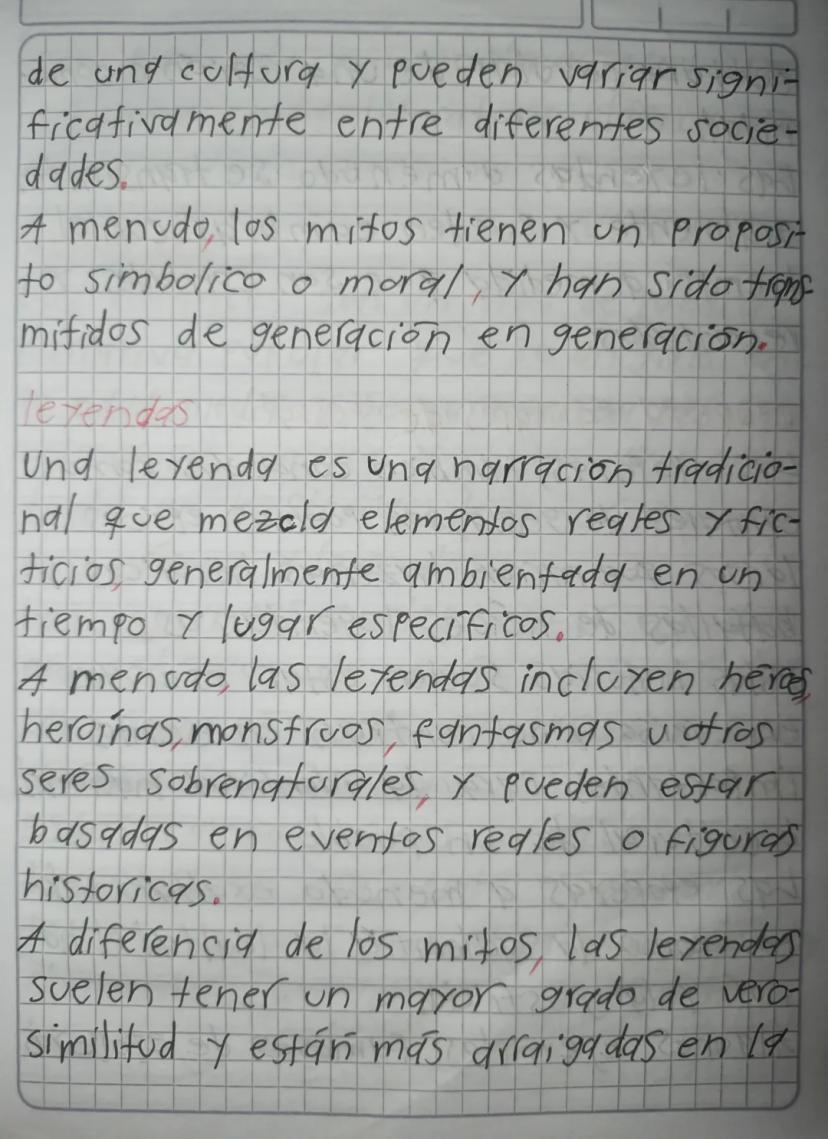 de una cultura y pueden variar signi-
ficativamente entre diferentes socie-
dades.
A menudo, los mitos tienen un proposi-
to simbolico o moral, y han sido trans-
mitidos de generación en generación.
leyendas
Una leyenda es una narración tradicio-
nal que mezcla elementos reales y fic-
ticios, generalmente ambientada en un
tiempo y lugar específicos.
A menudo, las leyendas incluyen héroes,
heroínas, monstruos, fantasmas u otros
seres sobrenaturales, y pueden estar
basadas en eventos reales o figuras
historicas.
A diferencia de los mitos, las leyendas
suelen tener un mayor grado de vero-
similitud y están más arraigadas en la